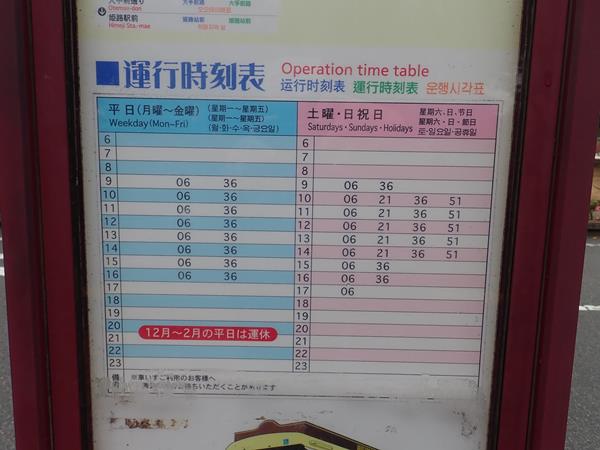 大手前通り 大手前路 大手前路
Otemae-dori
姫路駅前 姫路站前 姫路站前
Himeji Sta.-mae
■運行時刻表 Operation time table
运行时刻表 運行時刻表 운행시각표
平日(月曜〜金曜) (星期一〜星期五)
(星期一〜星期五)
Weekday(Mon~Fri) (월·화·수·목·금요일)
土曜・日祝日 星期六、日、节日
星期六・日・節日
Saturdays・Sundays・Holidays 토·일요일·공휴일
6 6
7 7
8 8
9 06 36 9 06 36
10 06 36 10 06 21 36 51
11 06 36 11 06 21 36 51
12 06 36 12 06 21 36 51
13 06 36 13 06 21 36 51
14 06 36 14 06 21 36 51
15 06 36 15 06 36
16 06 36 16 06 36
17 17 06
18 18
19 19
20 20
12月〜2月の平日は運休
21 21
22 22
23 23
備考 ※車いすご利用のお客様へ
お待ちいただくことがあります